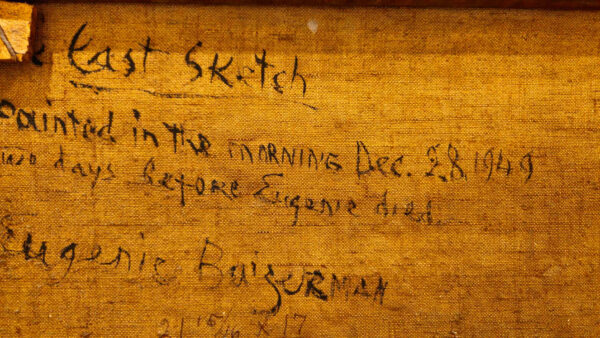 e Last Sketch
Painted in the MORNING Dec. 28, 1949
two days before Eugenie died.
Eugenie BaizeRMAN
21 15/16 X 17